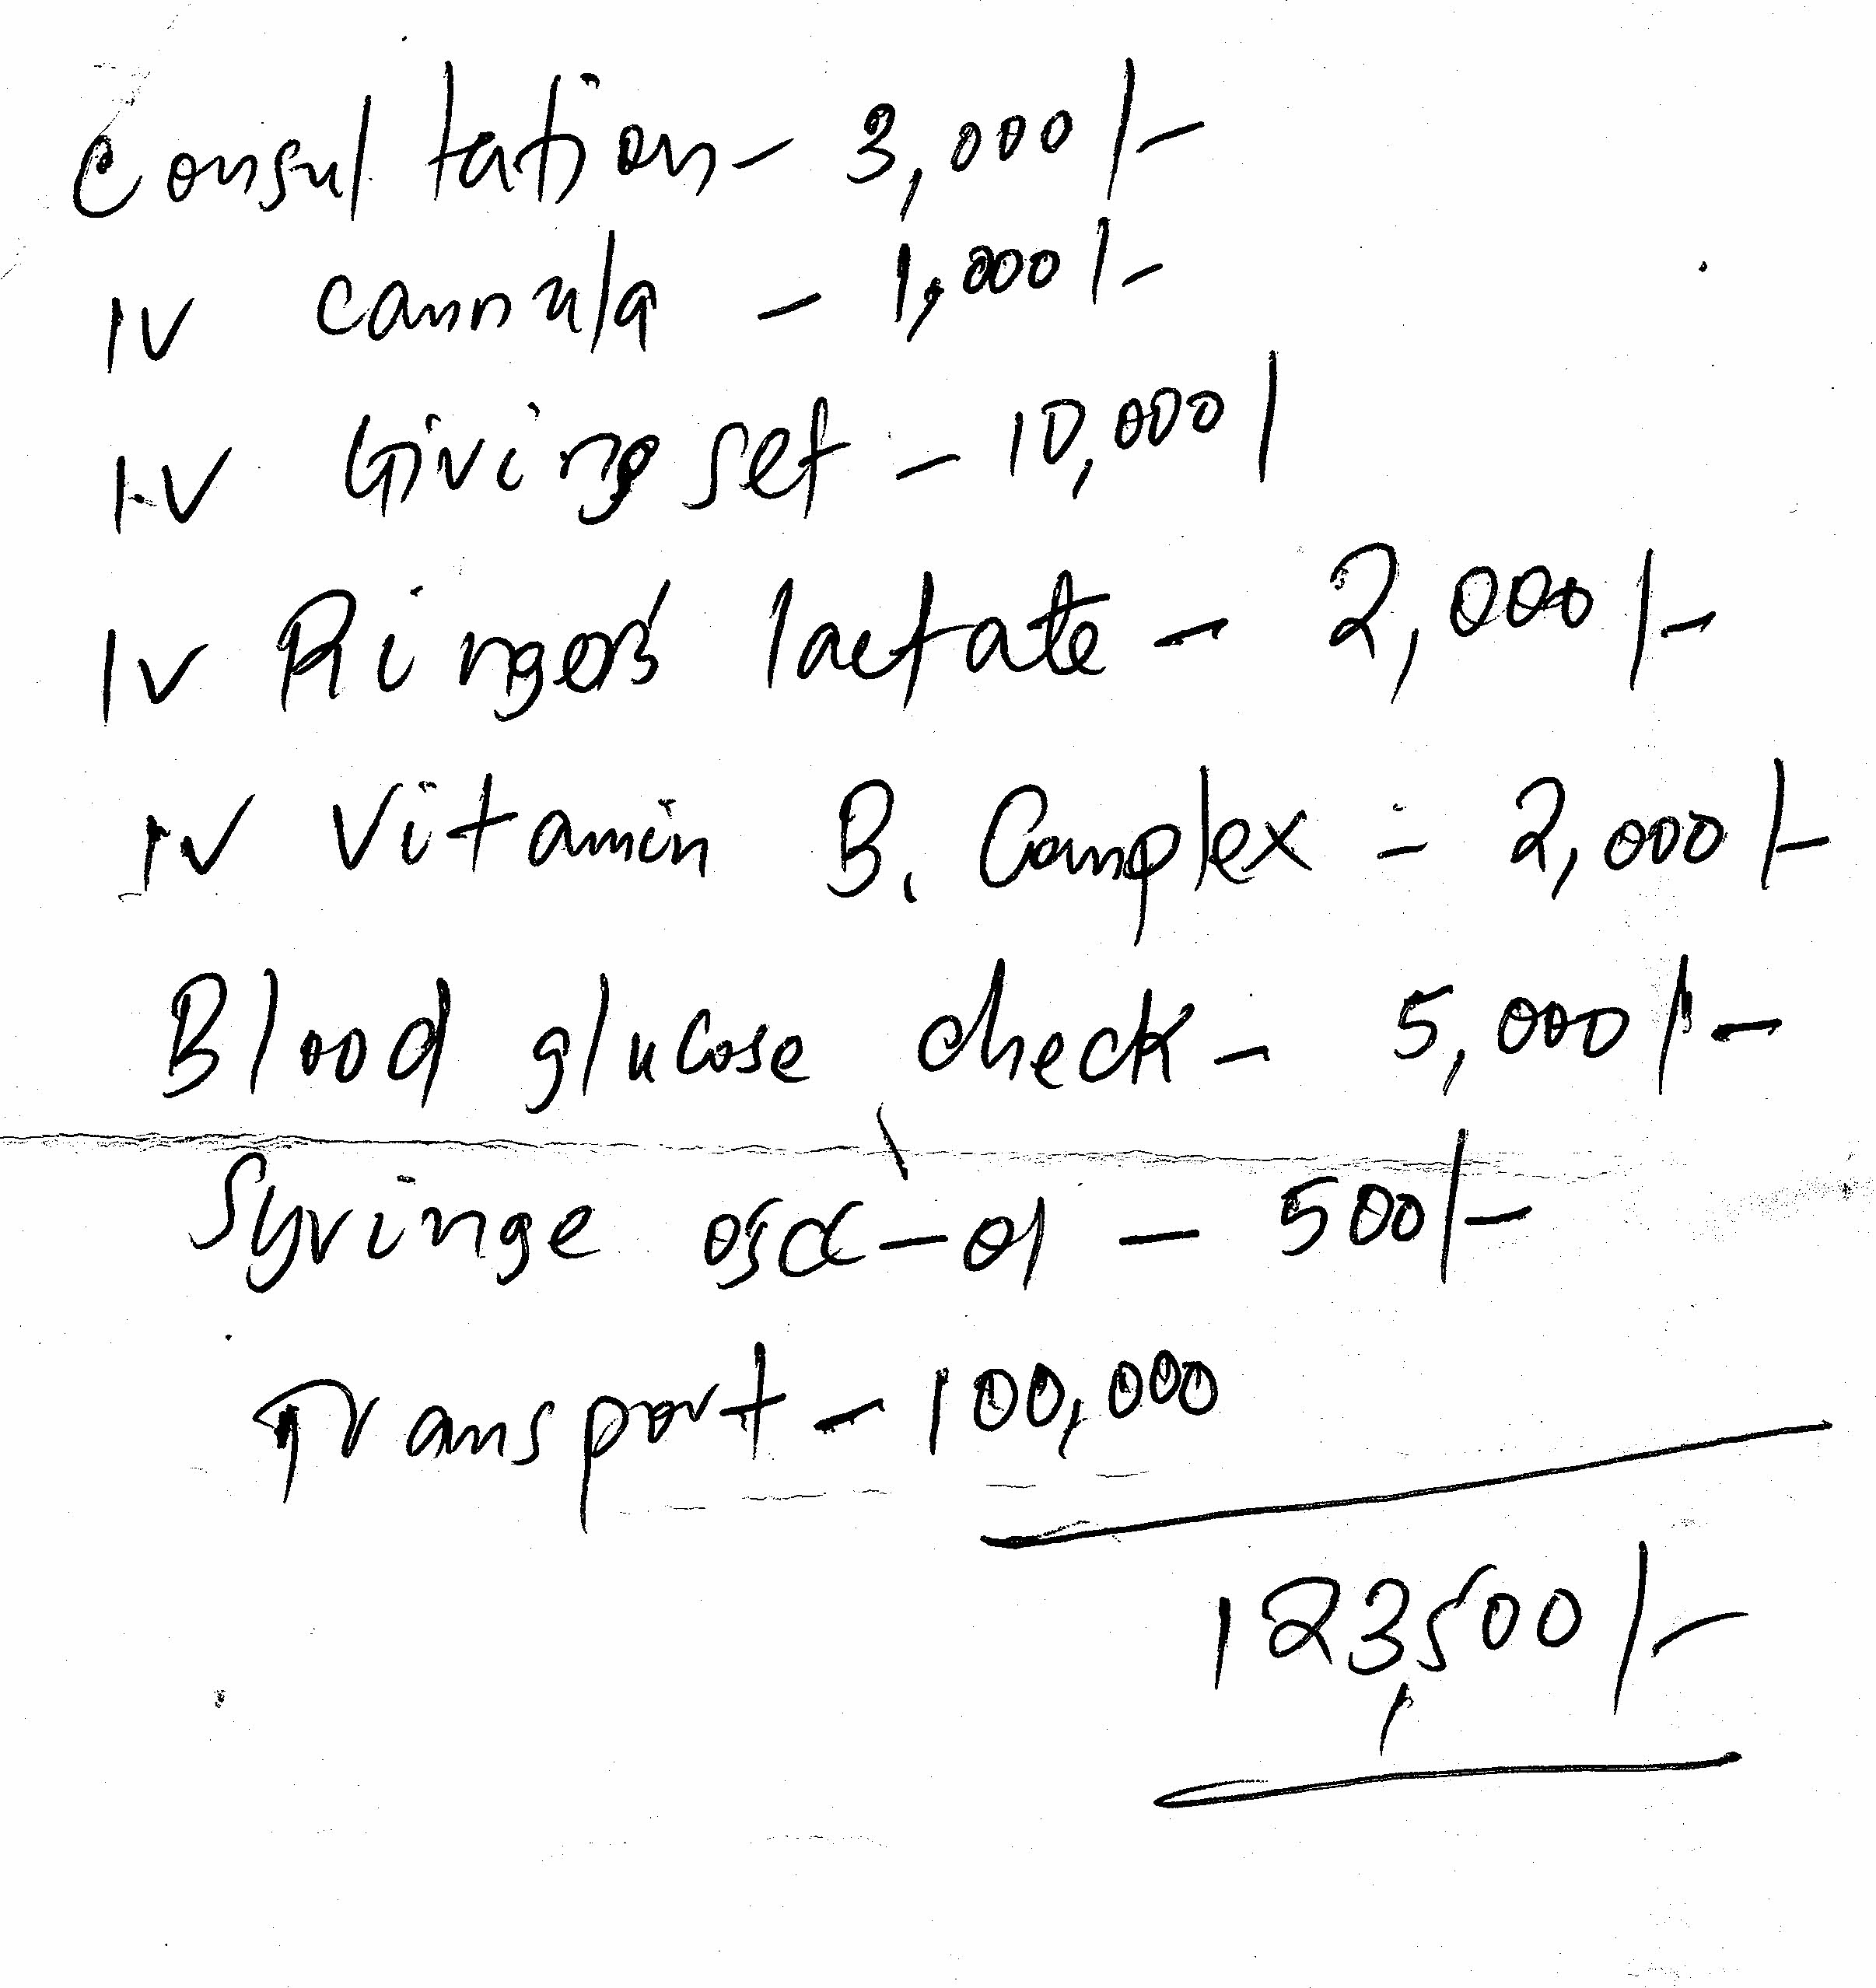 Consultation - 3,000/-
IV Cannula - 1,000/-
IV Giving set - 10,000/
IV Ringers' lactate - 2,000/-
IV Vitamin B. Complex - 2,000/-
Blood glucose check - 5,000/-
Syringe 05CC - 01 - 500/-
Transport - 100,000
123,500/-